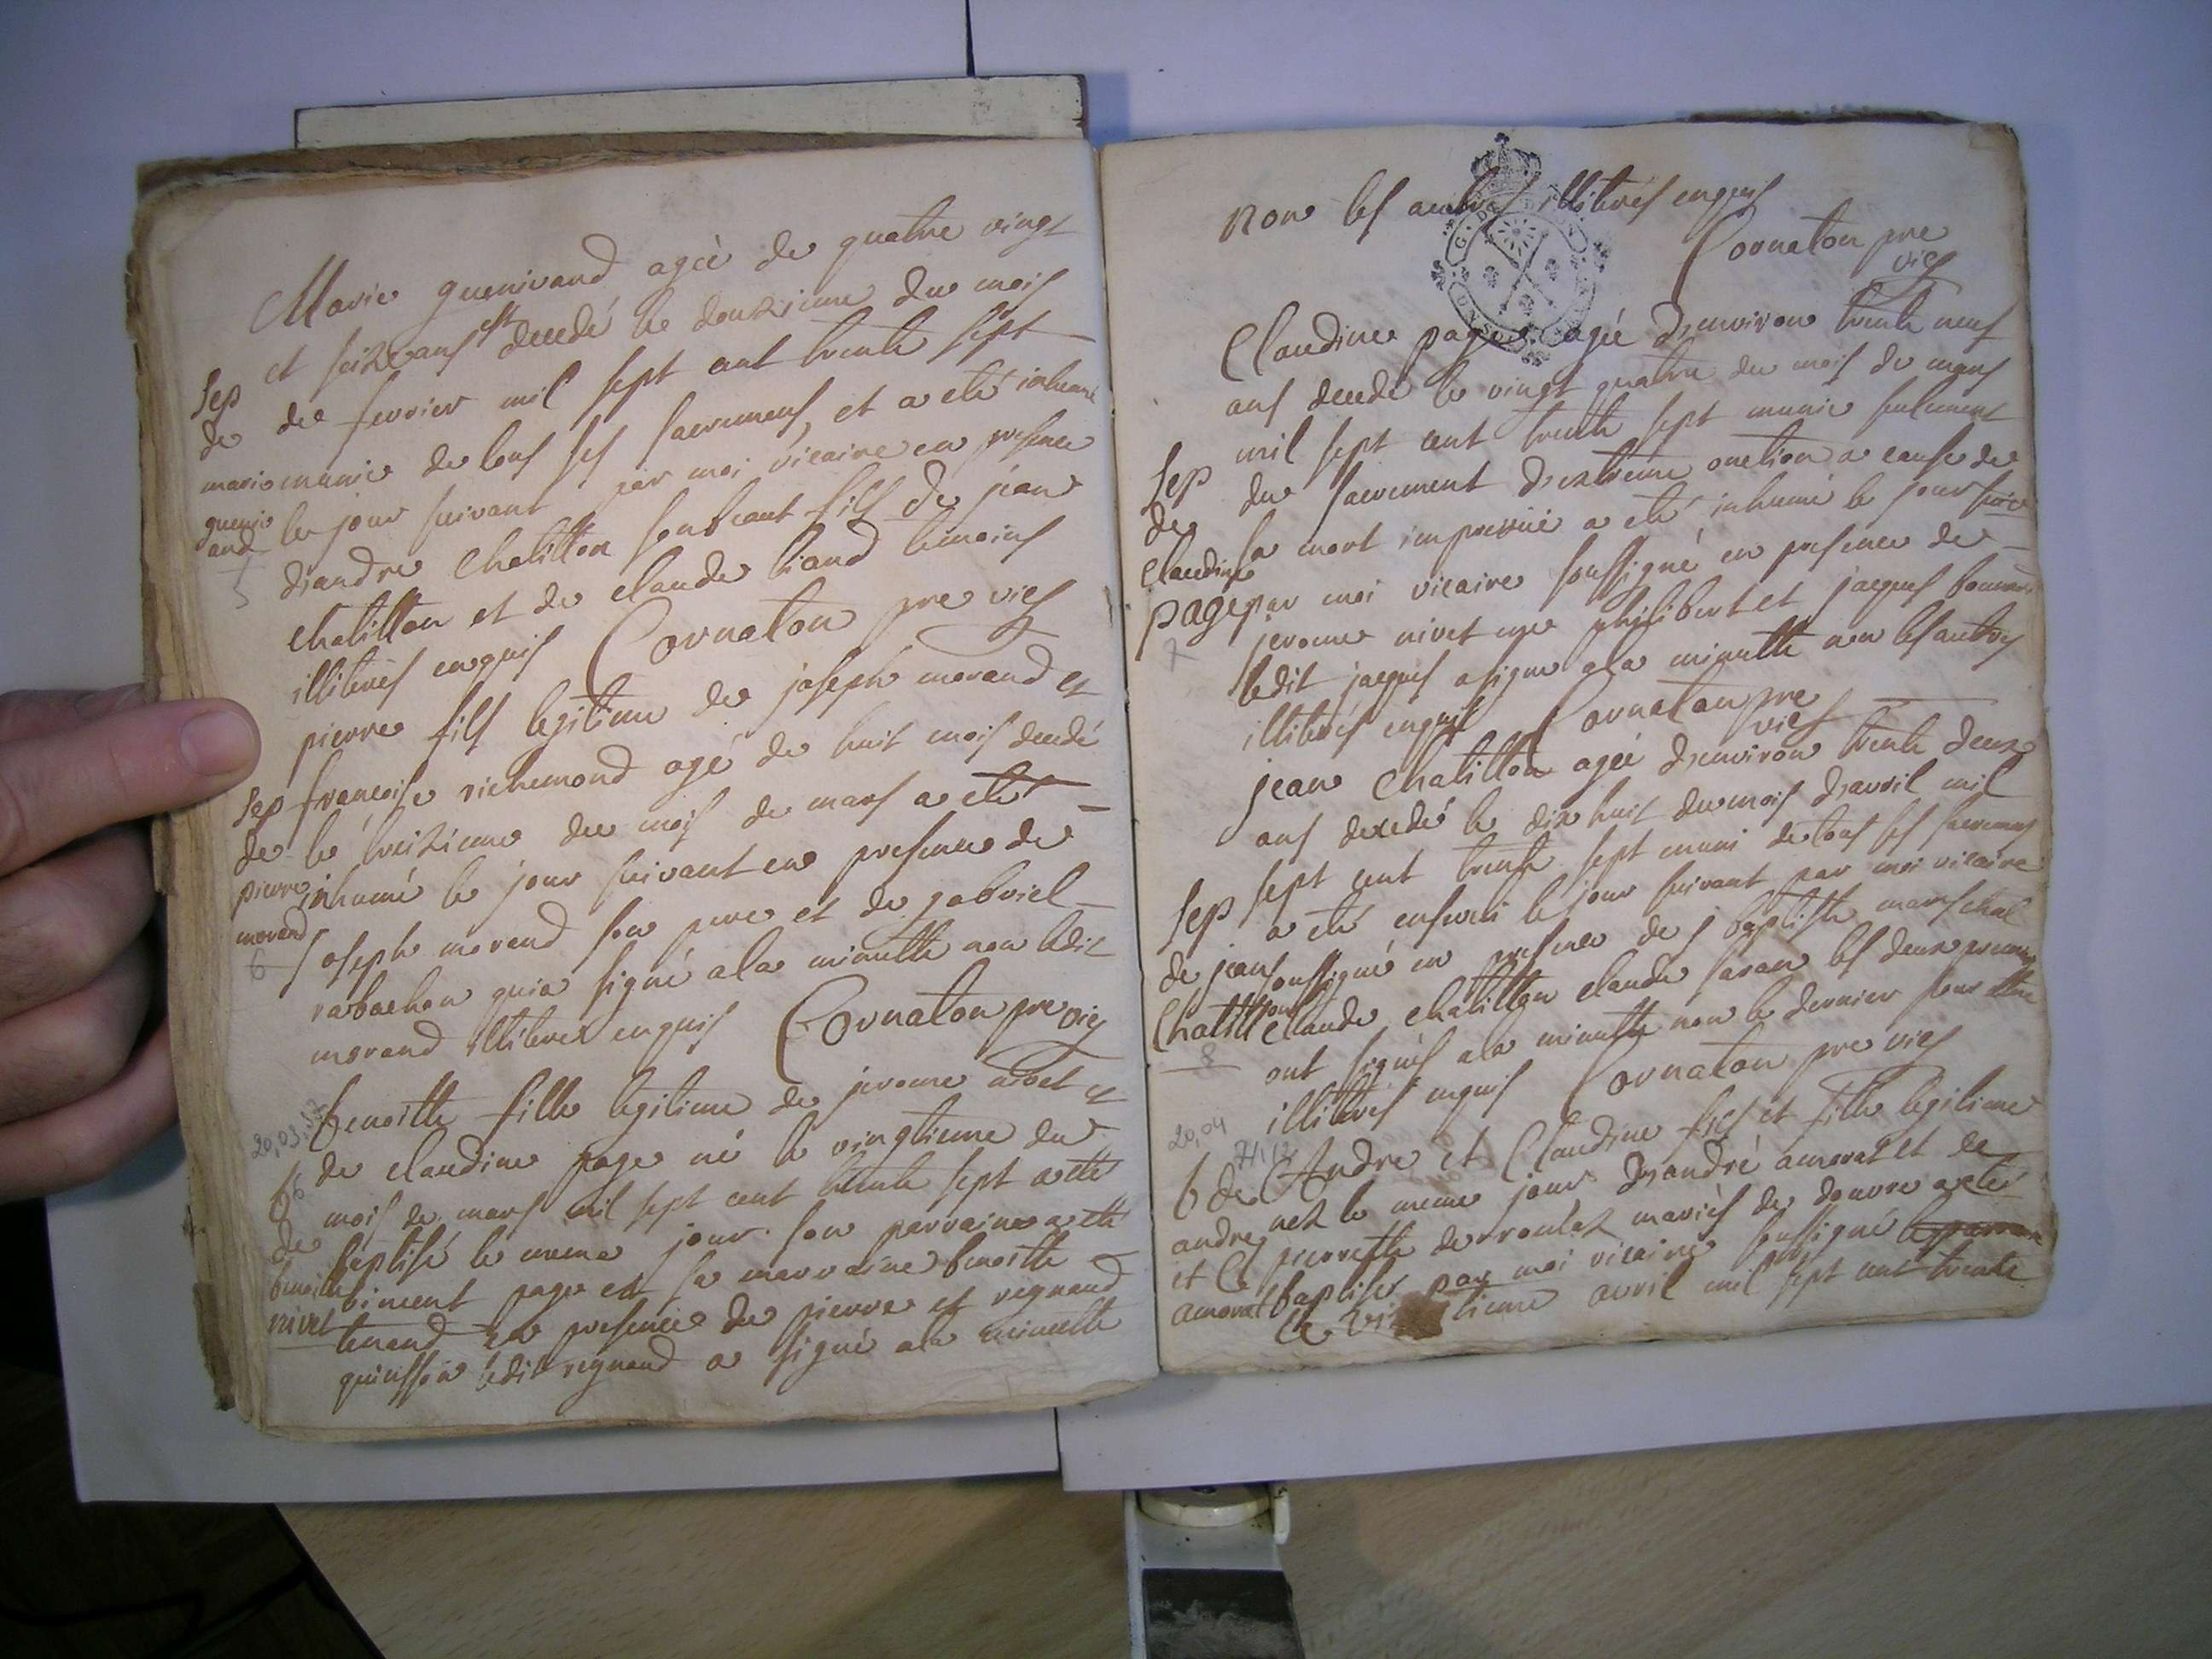 Marie guenivand agée de quatre vingt
et seize ans est decedé le douzieme du mois
de fevrier mil sept cent trente sept
munie de tous ses sacremens, et a eté inhumé
le jour suivant par moi vicaire en presence
d'andre Chatillon fils de jean
chatillon et de claude temoins
illiterés enquis Cornaton pre vics
Sep
de
marie
gueniv
and
5
pierre fils legitime de joseph morand et
françoise richemond agé de huit mois decedé
le treizieme du mois de mars a eté
inhumé le jour suivant en presence de
joseph morand son pere et de gabriel
rabachon qui a signé a la minutte non ledit
morand illiteré enquis Cornaton pre vics
Sep
de
pierre
morand
6
benoitte fille legitime de jerome nivet et
de claudine page né le vingtieme du
mois de mars mil sept cent trente sept a eté
baptisé le meme jour son parrain a eté
vincent page et sa marraine benoitte
tenand en presence de pierre et regnaud
quinsson ledit regnaud a signé a la minutte
20,03,37
b
de
benoitte
nivet
non les autres illiterés enquis
Cornaton pre
vics
Claudine page agée d'environ trente neuf
ans decedé le vingt quatre du mois de mars
mil sept cent trente sept munie seulement
du sacrement d'extreme onction a cause de
sa mort imprevüe a eté inhumé le jour suiv
par moi vicaire soussigné en presence de
jerome nivet philibert et jaques
ledit jaques a signé a la minutte non les autres
illiterés enquis Cornaton pre
vics
Sep
de
Claudine
page
7
jean Chatillon agée d'environ trente deux
ans decedé le dix huit du mois d'avril mil
sept cent trente sept muni de tous ses sacremens
a eté enseveli le jour suivant par moi vicaire
soussigné en presence de j baptiste mareschal
claude chatillon claude saran les deux premiers
ont signés a la minutte non le dernier pour etre
illiterés enquis Cornaton pre vics
Sep
de jean
Chatillon
8
Andre et Claudine fils et fille legitime
nez le meme jour d'andré amorat et de
pierrette derroulaz mariés de douvre a eté
baptisés par moi vicaire soussigné
le tieme avril mil sept cent trente
20,04
b de
andre
et Cl
amorat